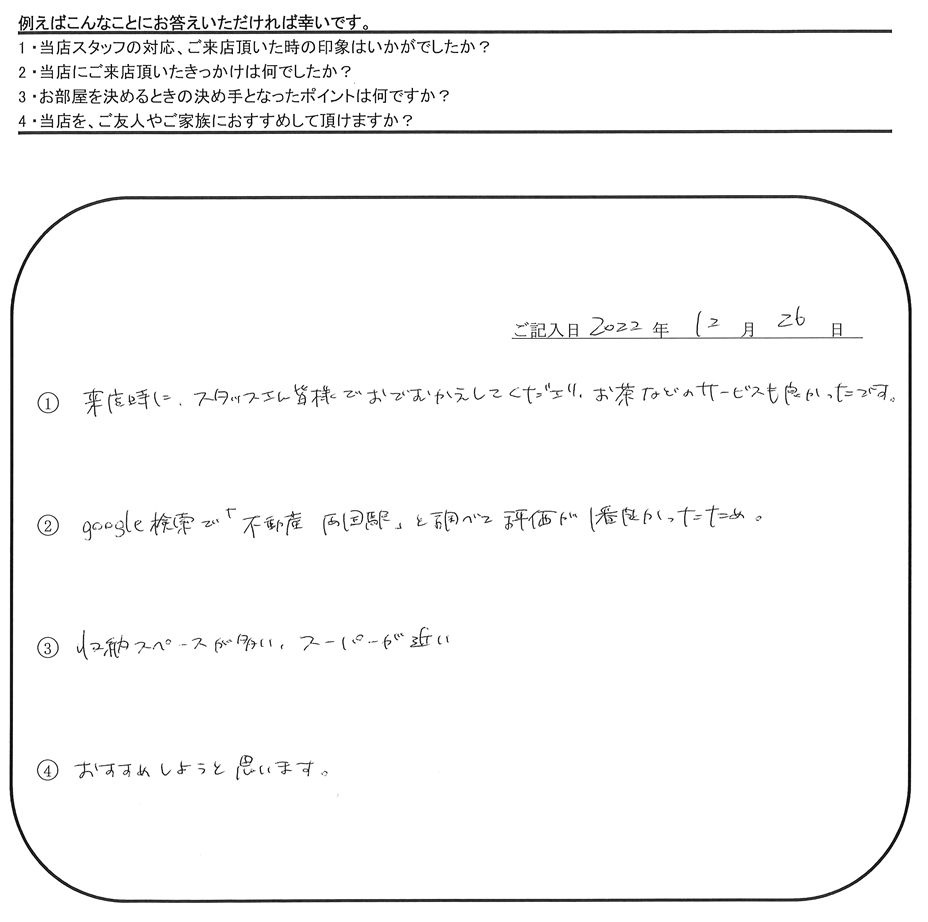 例えばこんなことにお答えいただければ幸いです。
1・当店スタッフの対応、ご来店頂いた時の印象はいかがでしたか？
2・当店にご来店頂いたきっかけは何でしたか？
3・お部屋を決めるときの決め手となったポイントは何ですか？
4・当店を、ご友人やご家族におすすめして頂けますか？
ご記入日 2022 年 12 月 26 日
① 来店時に、スタッフさん皆様でおでむかえしてくださり、お茶などのサービスも良かったです。
② google検索で「不動産 両国駅」と調べて評価が1番良かったため。
③ 収納スペースが多い、スーパーが近い
④ おすすめしようと思います。